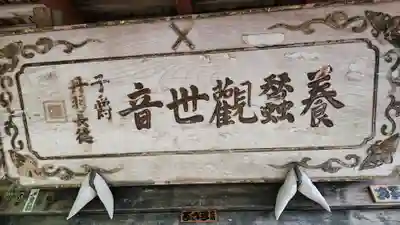 養蠶觀世音
子爵
丹羽長德